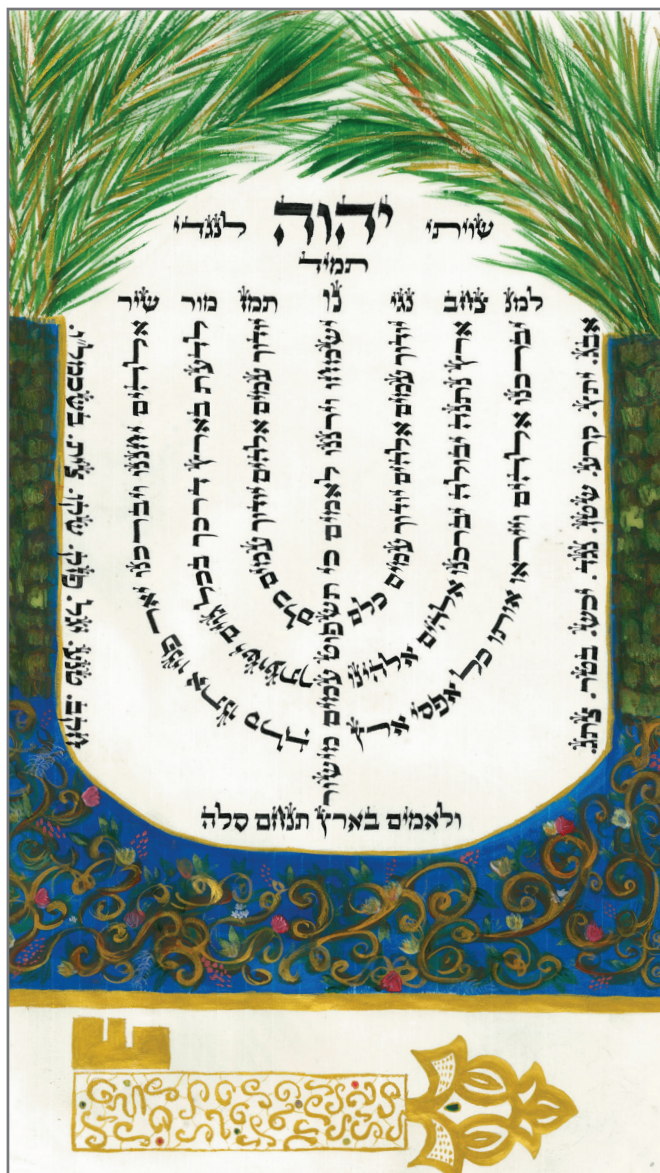 שויתי יהוה לנגדי
תמיד
למנ צחב נגי נו תמז מור שיר
אבג. יתץ. קרע. שטן. נגד. יכש. בטר. צתג.
יברכנו אלהים וייראו אותו כל אפסי ארץ
ארץ נתנה יבולה יברכנו אלהים אלהינו
יודוך עמים אלהים יודוך עמים כלם
ישמחו וירננו לאמים כי תשפט עמים מישור
יודוך עמים אלהים יודוך עמים כלם
לדעת בארץ דרכך בכל גוים ישועתך
אלהים יחננו ויברכנו יאר פניו אתנו סלה
חקב. טנע. יגל פזק. שקו. צית. בשכמל"ו.
ולאמים בארץ תנחם סלה